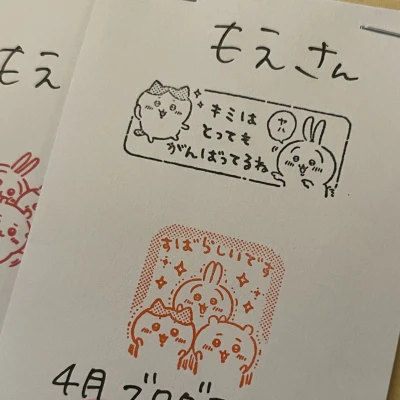 もえさん
もえ
キミは
とっても
がんばってるね
ヤハ
すばらしいです
4月 ブログ